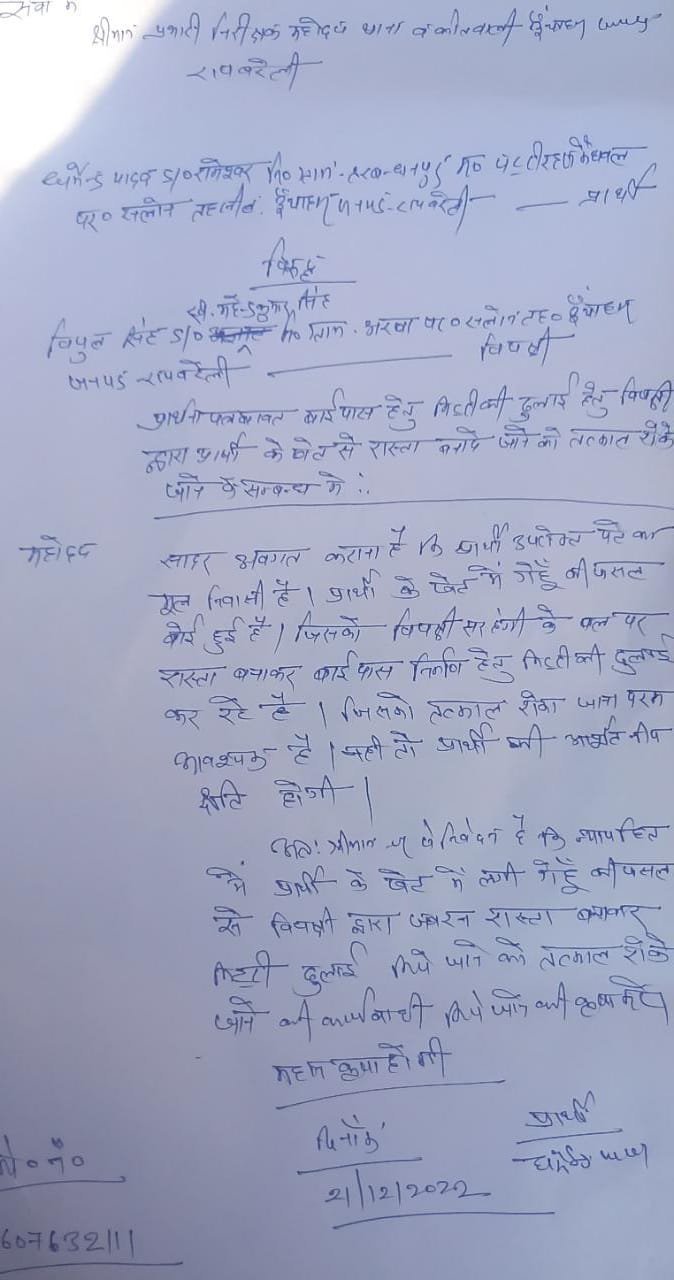 सेवा में
श्रीमान प्रभारी निरीक्षक महोदय थाना व कोतवाली ऊँचाहार जनपद
रायबरेली
धर्मेन्द्र यादव S/O रामेश्वर नि० ग्राम म० पट्टी रहस कैथवल
पर० सलोन तहसील. ऊँचाहार जनपद-रायबरेली — प्रार्थी
विरुद्ध
स्व. महेन्द्र कुमार सिंह
विपुल सिंह S/O नि० ग्राम. अरखा पर० सलोन तह० ऊँचाहार
जनपद रायबरेली — विपक्षी
प्रार्थना पत्र बावत बाईपास हेतु मिट्टी की ढुलाई हेतु विपक्षी
द्वारा प्रार्थी के खेत से रास्ता बनाये जाने को तत्काल रोके
जाने के सम्बन्ध में :.
महोदय
सादर अवगत कराना है कि प्रार्थी उपरोक्त पते का
मूल निवासी है। प्रार्थी के खेत में गेहूँ की फसल
बोई हुई है। जिसको विपक्षी सरहंगी के बल पर
रास्ता बनाकर बाईपास निर्माण हेतु मिट्टी की ढुलाई
कर रहे है। जिसको तत्काल रोका जाना परम
आवश्यक है। नही तो प्रार्थी की अपूर्णनीय
क्षति होगी।
अतः श्रीमान जी से निवेदन है कि न्यायहित
में प्रार्थी के खेत में लगी गेहूँ की फसल
से विपक्षी द्वारा जबरन रास्ता बनाकर
मिट्टी ढुलाई किये जाने को तत्काल रोके
जाने की कार्यवाही किये जाने की कृपा करें
महान कृपा होगी
दिनाँक प्रार्थी
21/12/2022
मो० नं०
607632111